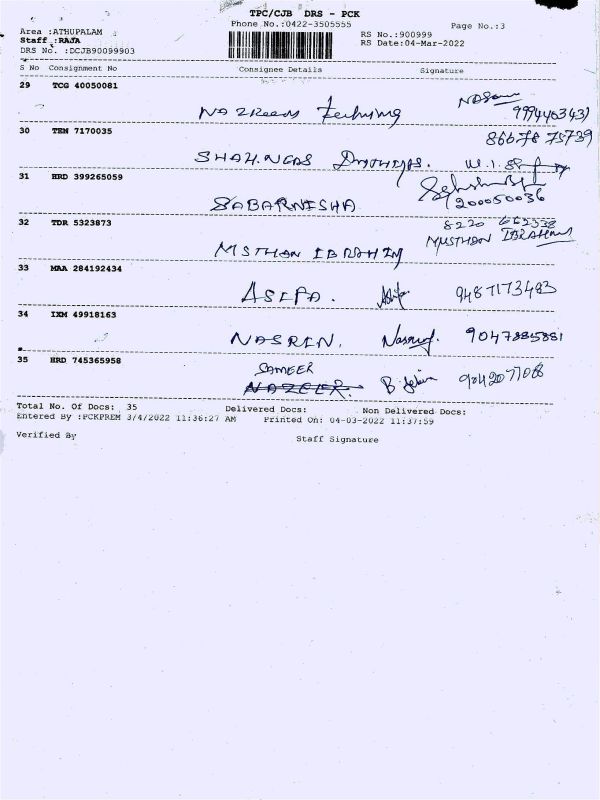 TPC/CJB DRS - PCK
Phone No.:0422-3505555
Page No.:3
Area :ATHUPALAM
Staff :RAJA
DRS No. :DCJB90099903
RS No.:900999
RS Date:04-Mar-2022
S No Consignment No Consignee Details Signature
29 TCG 40050081
30 TEN 7170035
SHAH.NGAS
31 HRD 399265059
SABARNISHA 200050036
32 TDR 5323873
MSTHAN IBRAHIM MUSTHAN IBRAHIM
33 MAA 284192434
ASIFA. 9487173483
34 IXM 49918163
NASRIN. 9047885881
35 HRD 745365958
SAMEER
NAZEER. 9042077088
Total No. Of Docs: 35 Delivered Docs: Non Delivered Docs:
Entered By :PCKPREM 3/4/2022 11:36:27 AM Printed On: 04-03-2022 11:37:59
Verified By Staff Signature